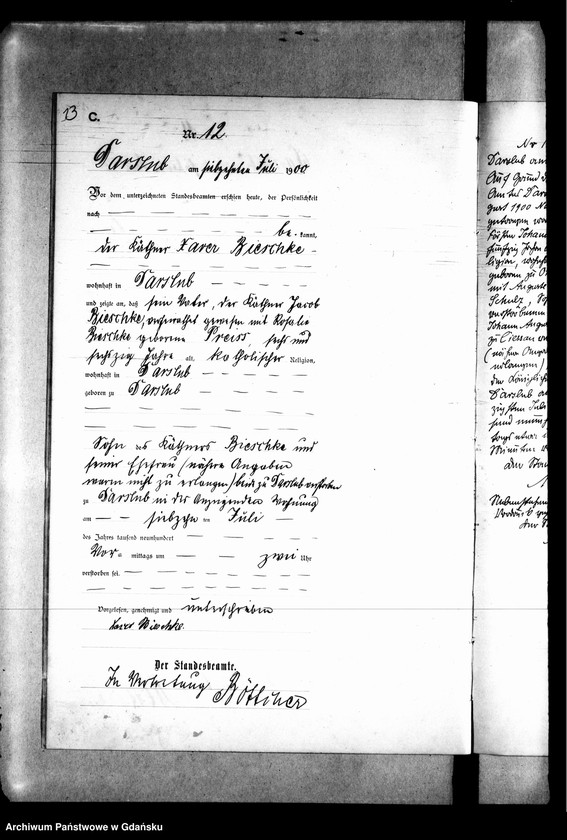 13
C.
Nr. 12.
Darslub am siebzehnten Juli 1900
Vor dem unterzeichneten Standesbeamten erschien heute, der Persönlichkeit
nach
be kannt,
der Käthner Xaver Bieschke
wohnhaft in Darslub
und zeigte an, daß sein Vater, der Käthner Jacob
Bieschke, verheirathet gewesen mit Rosalie
Bieschke geborene Preiss, sechs und
sechszig Jahre alt, katholischer Religion,
wohnhaft in Darslub
geboren zu Darslub
Sohn des Käthners Bieschke und
seiner Ehefrau (nähere Angaben
waren nicht zu erlangen) beide zu Darslub verstorben
zu Darslub in der Anzeigenden Wohnung
am siebzehn ten Juli
des Jahres tausend neunhundert
Vor mittags um zwei Uhr
verstorben sei.
Vorgelesen, genehmigt und unterschrieben
Xaver Bieschke.
Der Standesbeamte.
In Vertretung Böttcher
Nr 1
Darslub am
Auf Grund d
Amtes Dars
gust 1900 N
Försters Johann
ligion, wohn
geboren zu
mit Auguste
Schulz,
verstorbenen
Johann Augu
zu Ciessau
(nähere Anga
erlangen)
der Königlich
Darslub a
zigsten Juli
Archiwum Państwowe w Gdańsku